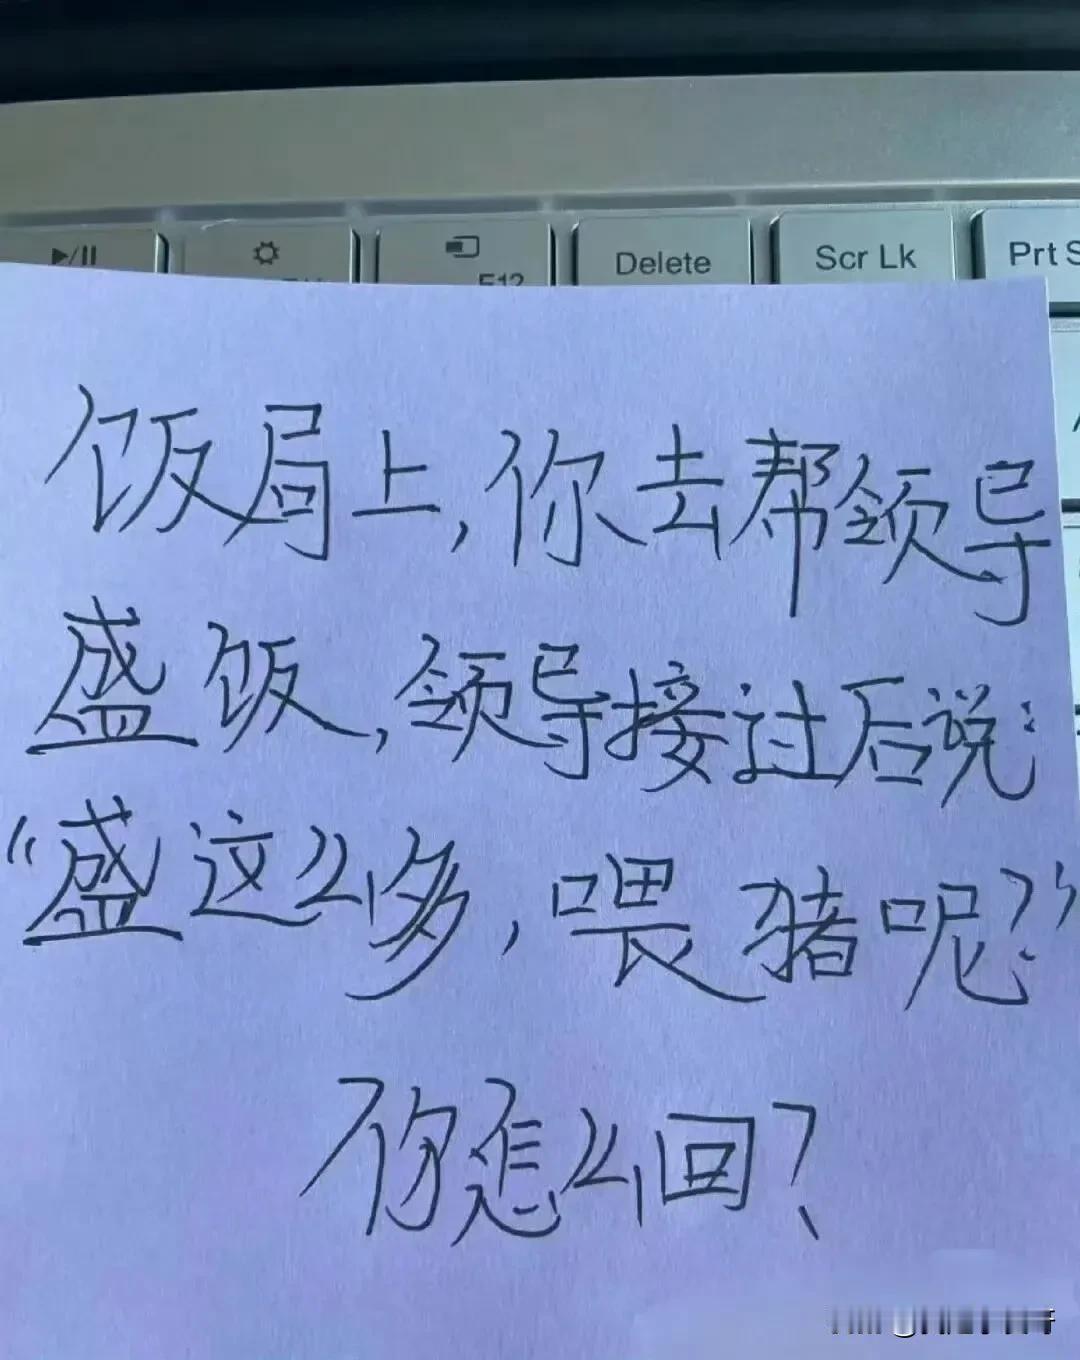 F12
Delete
Scr Lk
Prt S
饭局上,你去帮领导
盛饭,领导接过后说:
“盛这么多,喂猪呢?”
你怎么回?